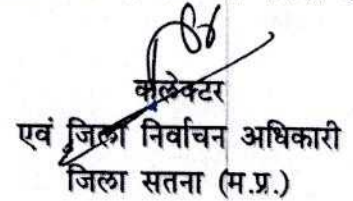 कलेक्टर
एवं जिला निर्वाचन अधिकारी
जिला सतना (म.प्र.)